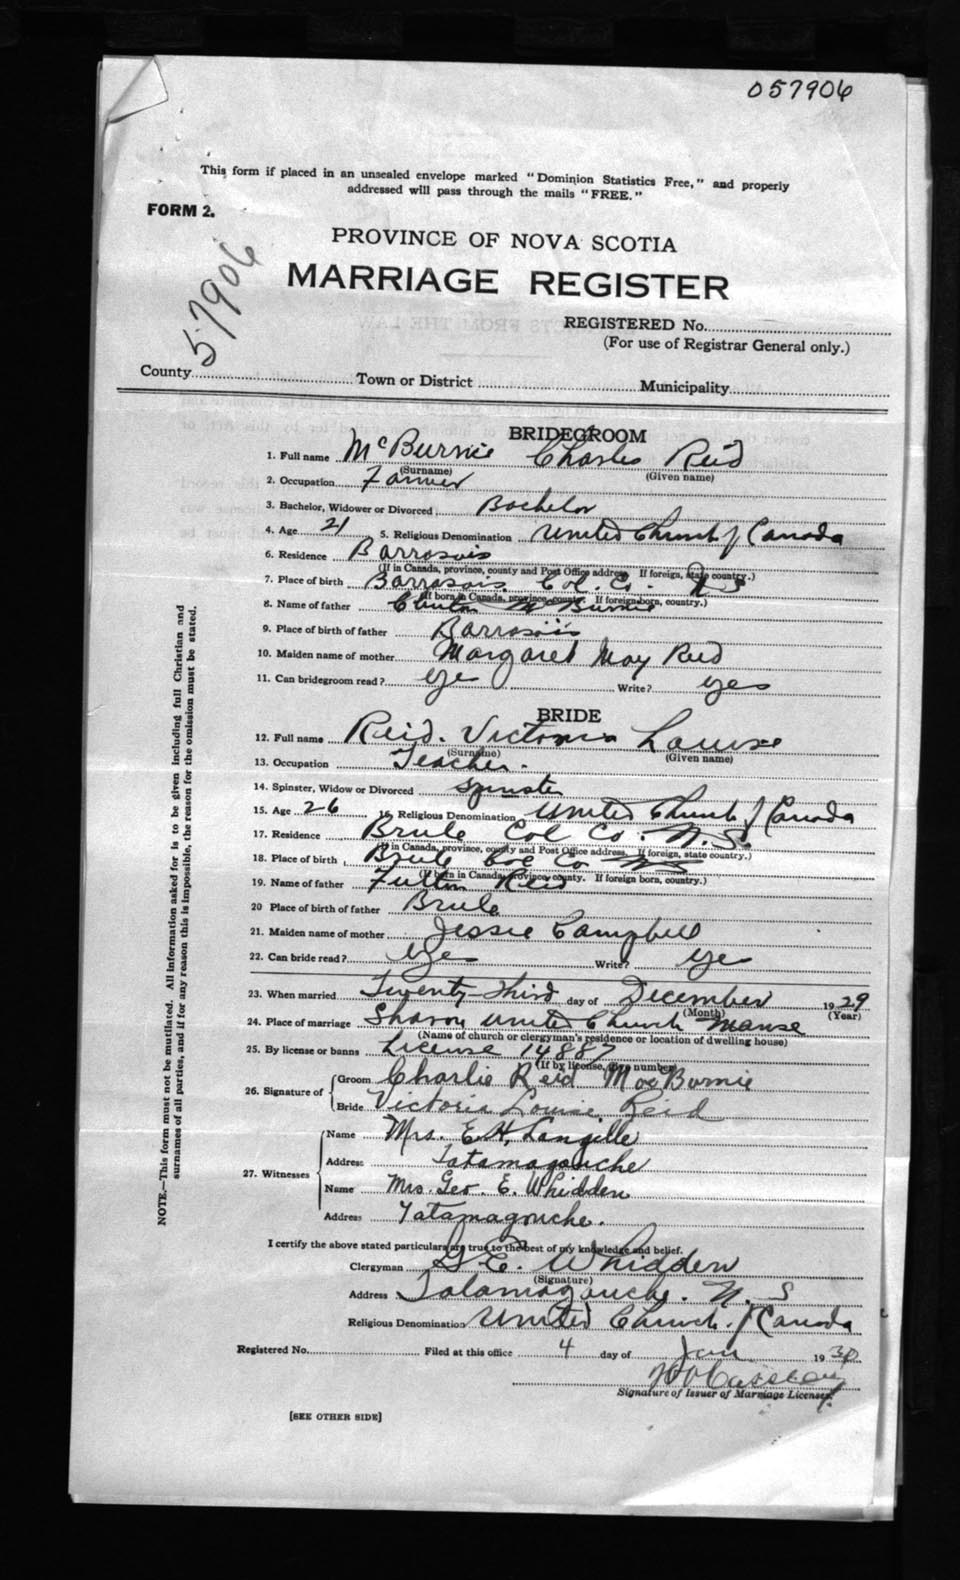 057906
This form if placed in an unsealed envelope marked "Dominion Statistics Free," and properly
addressed will pass through the mails "FREE."
FORM 2.
57906
PROVINCE OF NOVA SCOTIA
MARRIAGE REGISTER
REGISTERED No.
(For use of Registrar General only.)
County Town or District Municipality
BRIDEGROOM
1. Full name McBurnie Charles Reid
(Surname) (Given name)
2. Occupation Farmer
3. Bachelor, Widower or Divorced Bachelor
4. Age 21 5. Religious Denomination United Church of Canada
6. Residence Barrasois
(If in Canada, province, county and Post Office address. If foreign, state country.)
7. Place of birth Barrasois Col Co. N S
(If born in Canada, province, county. If foreign born, country.)
8. Name of father Clinton McBurnie
9. Place of birth of father Barrasois
10. Maiden name of mother Margaret May Reid
11. Can bridegroom read? yes Write? yes
BRIDE
12. Full name Reid. Victoria Louise
(Surname) (Given name)
13. Occupation Teacher.
14. Spinster, Widow or Divorced Spinster
15. Age 26 16. Religious Denomination United Church of Canada
17. Residence Brule Col Co. N.S.
(If in Canada, province, county and Post Office address. If foreign, state country.)
18. Place of birth Brule Col Co NS
(If born in Canada, province, county. If foreign born, country.)
19. Name of father Fulton Reid
20 Place of birth of father Brule
21. Maiden name of mother Jessie Campbell
22. Can bride read? yes Write? yes
23. When married Twenty-third day of December 1929
(Month) (Year)
24. Place of marriage Sharon United Church Manse
(Name of church or clergyman's residence or location of dwelling house)
25. By license or banns License 14887
(If by license, give number)
26. Signature of Groom Charlie Reid MacBurnie
Bride Victoria Louise Reid
27. Witnesses Name Mrs. E.H. Langille
Address Tatamagouche
Name Mrs. Geo. E. Whidden
Address Tatamagouche.
I certify the above stated particulars are true to the best of my knowledge and belief.
Clergyman G.E. Whidden
(Signature)
Address Tatamagouche. N. S
Religious Denomination United Church of Canada
Registered No. Filed at this office 4 day of Jan 1930
Signature of Issuer of Marriage License.
[SEE OTHER SIDE]
NOTE.—This form must not be mutilated. All information asked for is to be given including full Christian and
surnames of all parties, and if for any reason this is impossible, the reason for the omission must be stated.